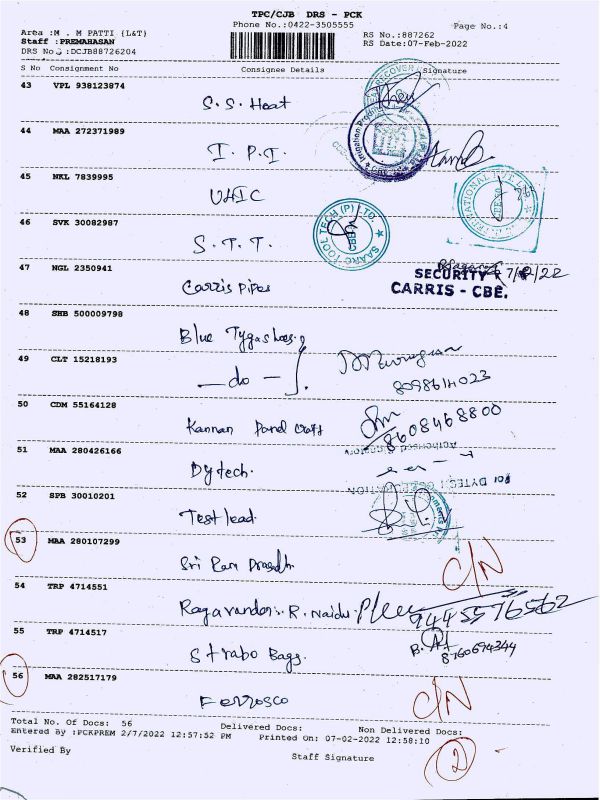 TPC/CJB DRS - PCK
Phone No.:0422-3505555
Page No.:4
Area :M . M PATTI {L&T}
RS No.:887262
Staff : PREMAHASAN
RS Date:07-Feb-2022
DRS No.:DCJB88726204
S No Consignment No Consignee Details Signature
43 VPL 938123874
S.S. Heat
44 MAA 272371989
I. P. I.
45 NKL 7839995
UHIC
46 SVK 30082987
S.T.T.
SAARC TOOL TECH (P) LTD.
CBE
47 NGL 2350941
Carris Pipes
SECURITY
CARRIS - CBE.
48 SHB 500009798
Blue Tygashoes
49 CLT 15218193
— do —
50 CDM 55164128
Kannan Panel Craft
8608468800
51 MAA 280426166
Dytech.
52 SPB 30010201
Test lead
53 MAA 280107299
Sri Ram Prasadh
C/N
54 TRP 4714551
Ragavandor. R. Naidu
9445576562
55 TRP 4714517
Strabo Bags.
8760694344
56 MAA 282517179
Ferrosco
C/N
Total No. Of Docs: 56 Delivered Docs: Non Delivered Docs:
Entered By :PCKPREM 2/7/2022 12:57:52 PM Printed On: 07-02-2022 12:58:10
2
Verified By
Staff Signature